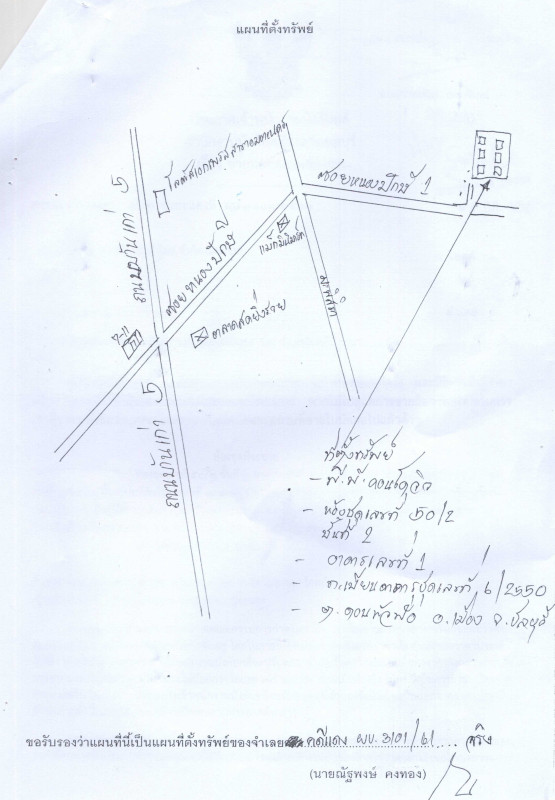 แผนที่ตั้งทรัพย์
ถนนบ้านเก่า 5
ซอยหนองปักษี 1
ซอยหนองปักษี
แม็กมินิมาร์ท
7-11
ตลาดสด
ถนนบ้านเก่า 5
ที่ตั้งทรัพย์
- พี.พี.คอนโดวิว
- ห้องชุดเลขที่ 50/2
ชั้นที่ 2
- อาคารเลขที่ 1
- ทะเบียนอาคารชุดเลขที่ 6/2550
- ต.ดอนหัวฬ่อ อ.เมือง จ.ชลบุรี
ขอรับรองว่าแผนที่นี้เป็นแผนที่ตั้งทรัพย์ของจำเลย คดีแดง ผบ.3101/61 จริง
(นายณัฐพงษ์ คงทอง)